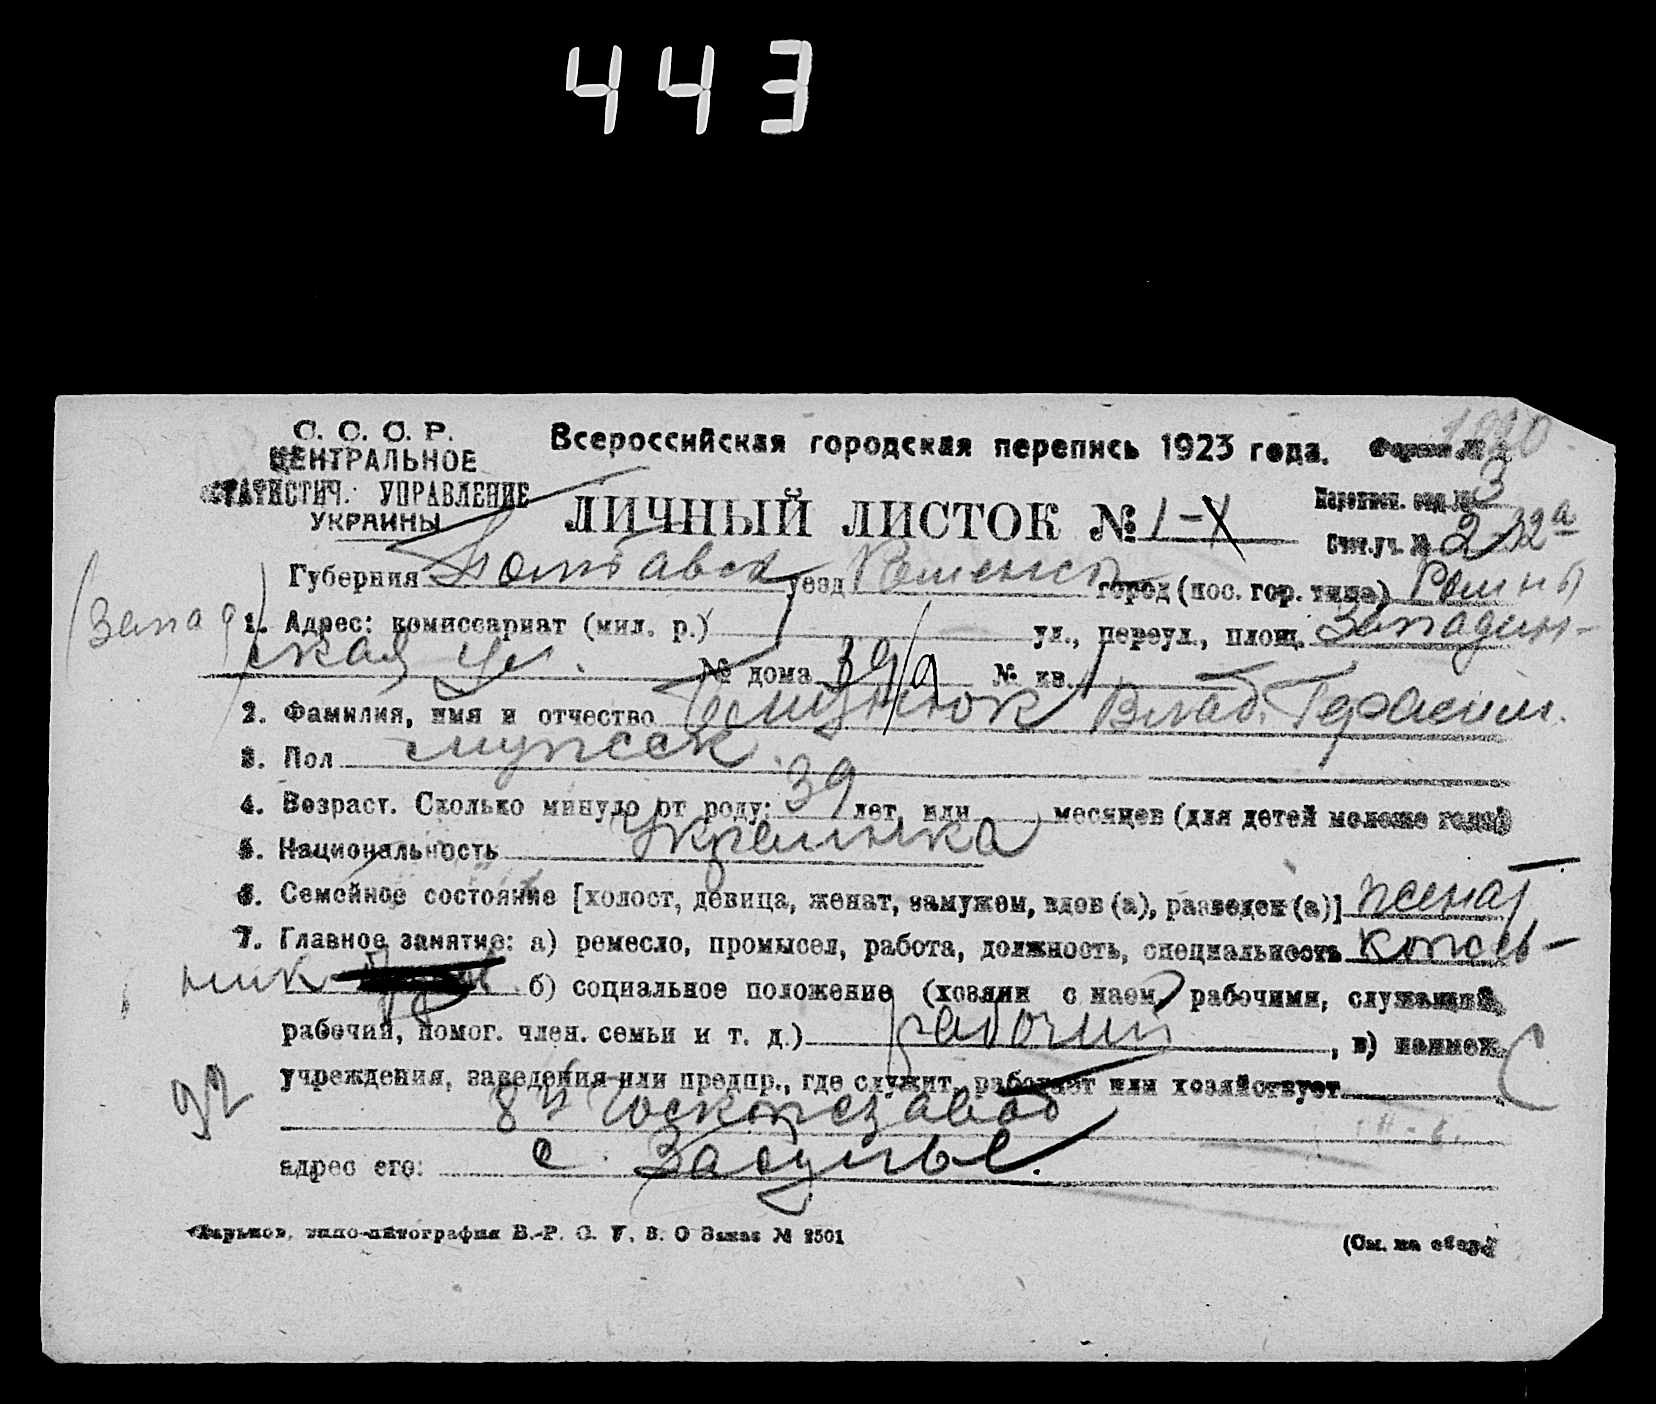 443
С. С. С. Р.
ЦЕНТРАЛЬНОЕ
СТАТИСТИЧ. УПРАВЛЕНИЕ
УКРАИНЫ
Всероссийская городская перепись 1923 года.
Форма №
Переписн. отд. № 3
ЛИЧНЫЙ ЛИСТОК № 1-
Счетн.уч. № 2 32а
Губерния Полтавск уезд Роменск город (пос. гор. типа) Ромны
(Запад)
1. Адрес: комиссариат (мил. р.) ул., переул., площ. Западин-
ская ул. № дома 39/а № кв. 1
2. Фамилия, имя и отчество Влад. Герасим.
3. Пол мужеск
4. Возраст. Сколько минуло от роду: 39 лет, или месяцев (для детей моложе года)
5. Национальность Украинка
6. Семейное состояние [холост, девица, женат, замужем, вдов (а), разведен (а)] женат
7. Главное занятие: а) ремесло, промысел, работа, должность, специальность кожев-
ник б) социальное положение (хозяин с наем. рабочими, служащий,
рабочий, помог. член. семьи и т. д.) рабочий, в) наимен.
учреждения, заведения или предпр., где служит, работает или хозяйствует
92
8й Госкожзавод
адрес его: с. Засулье.
Харьков, типо-литография В.-Р. С. У. В. О Заказ № 2501
(См. на обор.)